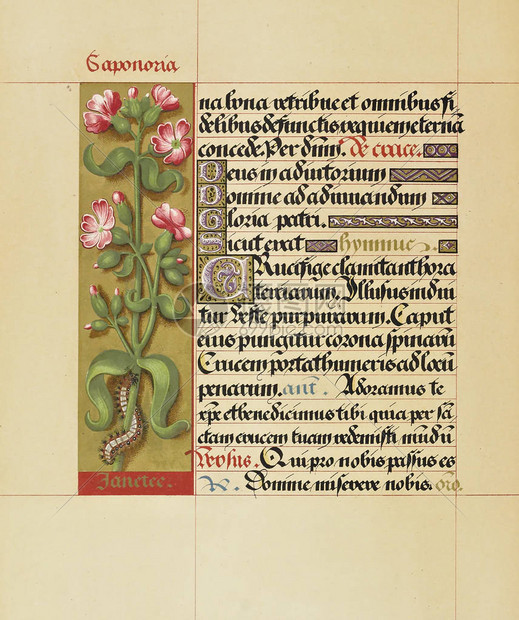 Saponoria
na bona retribue et omnibus fi
delibus defunctis requiem eternā
concede. Per dūm. De cruce.
Deus in adiutorium
Domine ad adiuuandum
Gloria patri.
Sicut erat hymnus.
CRucifige clamitant hora
terciarum. Illusus indui
tur veste purpurarum. Caput
eius pungitur corona spinarū
Crucem portat humeris ad locū
penarum. ant. Adoramus te
xp̄e et benedicimus tibi quia per sā
ctam crucem tuam redemisti mūdū
Versus. Qui pro nobis passus es
R. Domine miserere nobis. oro.
Janetee.